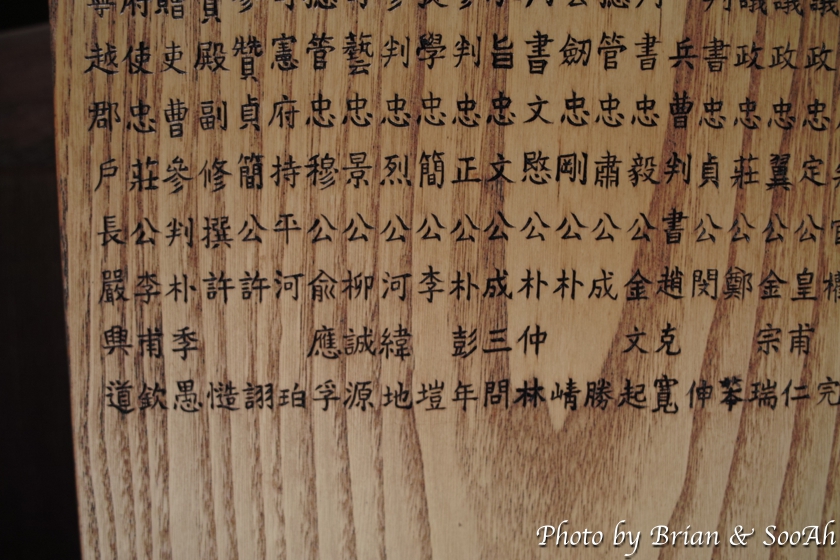 議政忠定公皇甫仁
議政忠翼公金宗瑞
議政忠莊公鄭苯
判書忠貞公閔伸
兵曹判書趙克寬
書忠毅公金文起
管忠肅公成勝
劒忠剛公朴崝
書文愍公朴仲林
旨忠文公成三問
參判忠正公朴彭年
學忠簡公李塏
參判忠烈公河緯地
藝忠景公柳誠源
摠管忠穆公兪應孚
憲府持平河珀
參贊貞簡公許詡
殿副修撰許慥
贈吏曹參判朴季愚
府使忠莊公李甫欽
寧越郡戶長嚴興道
Photo by Brian & SooAh